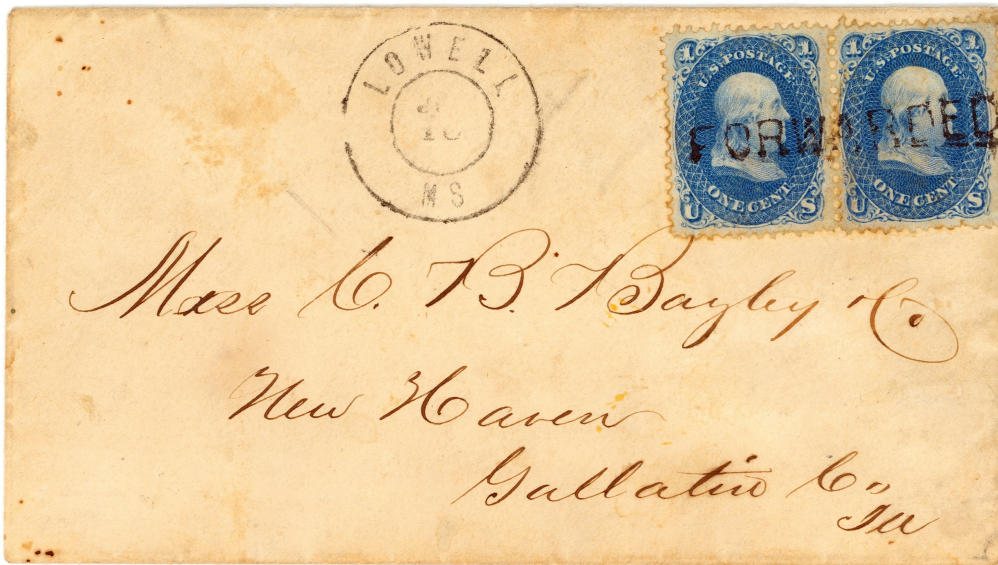 LOWELL
MS
1 U.S. POSTAGE 1
ONE CENT
U S
1 U.S. POSTAGE 1
ONE CENT
U S
FORWARDED
Miss C. B. Bayley & Co.
New Haven
Gallatin Co
Ill